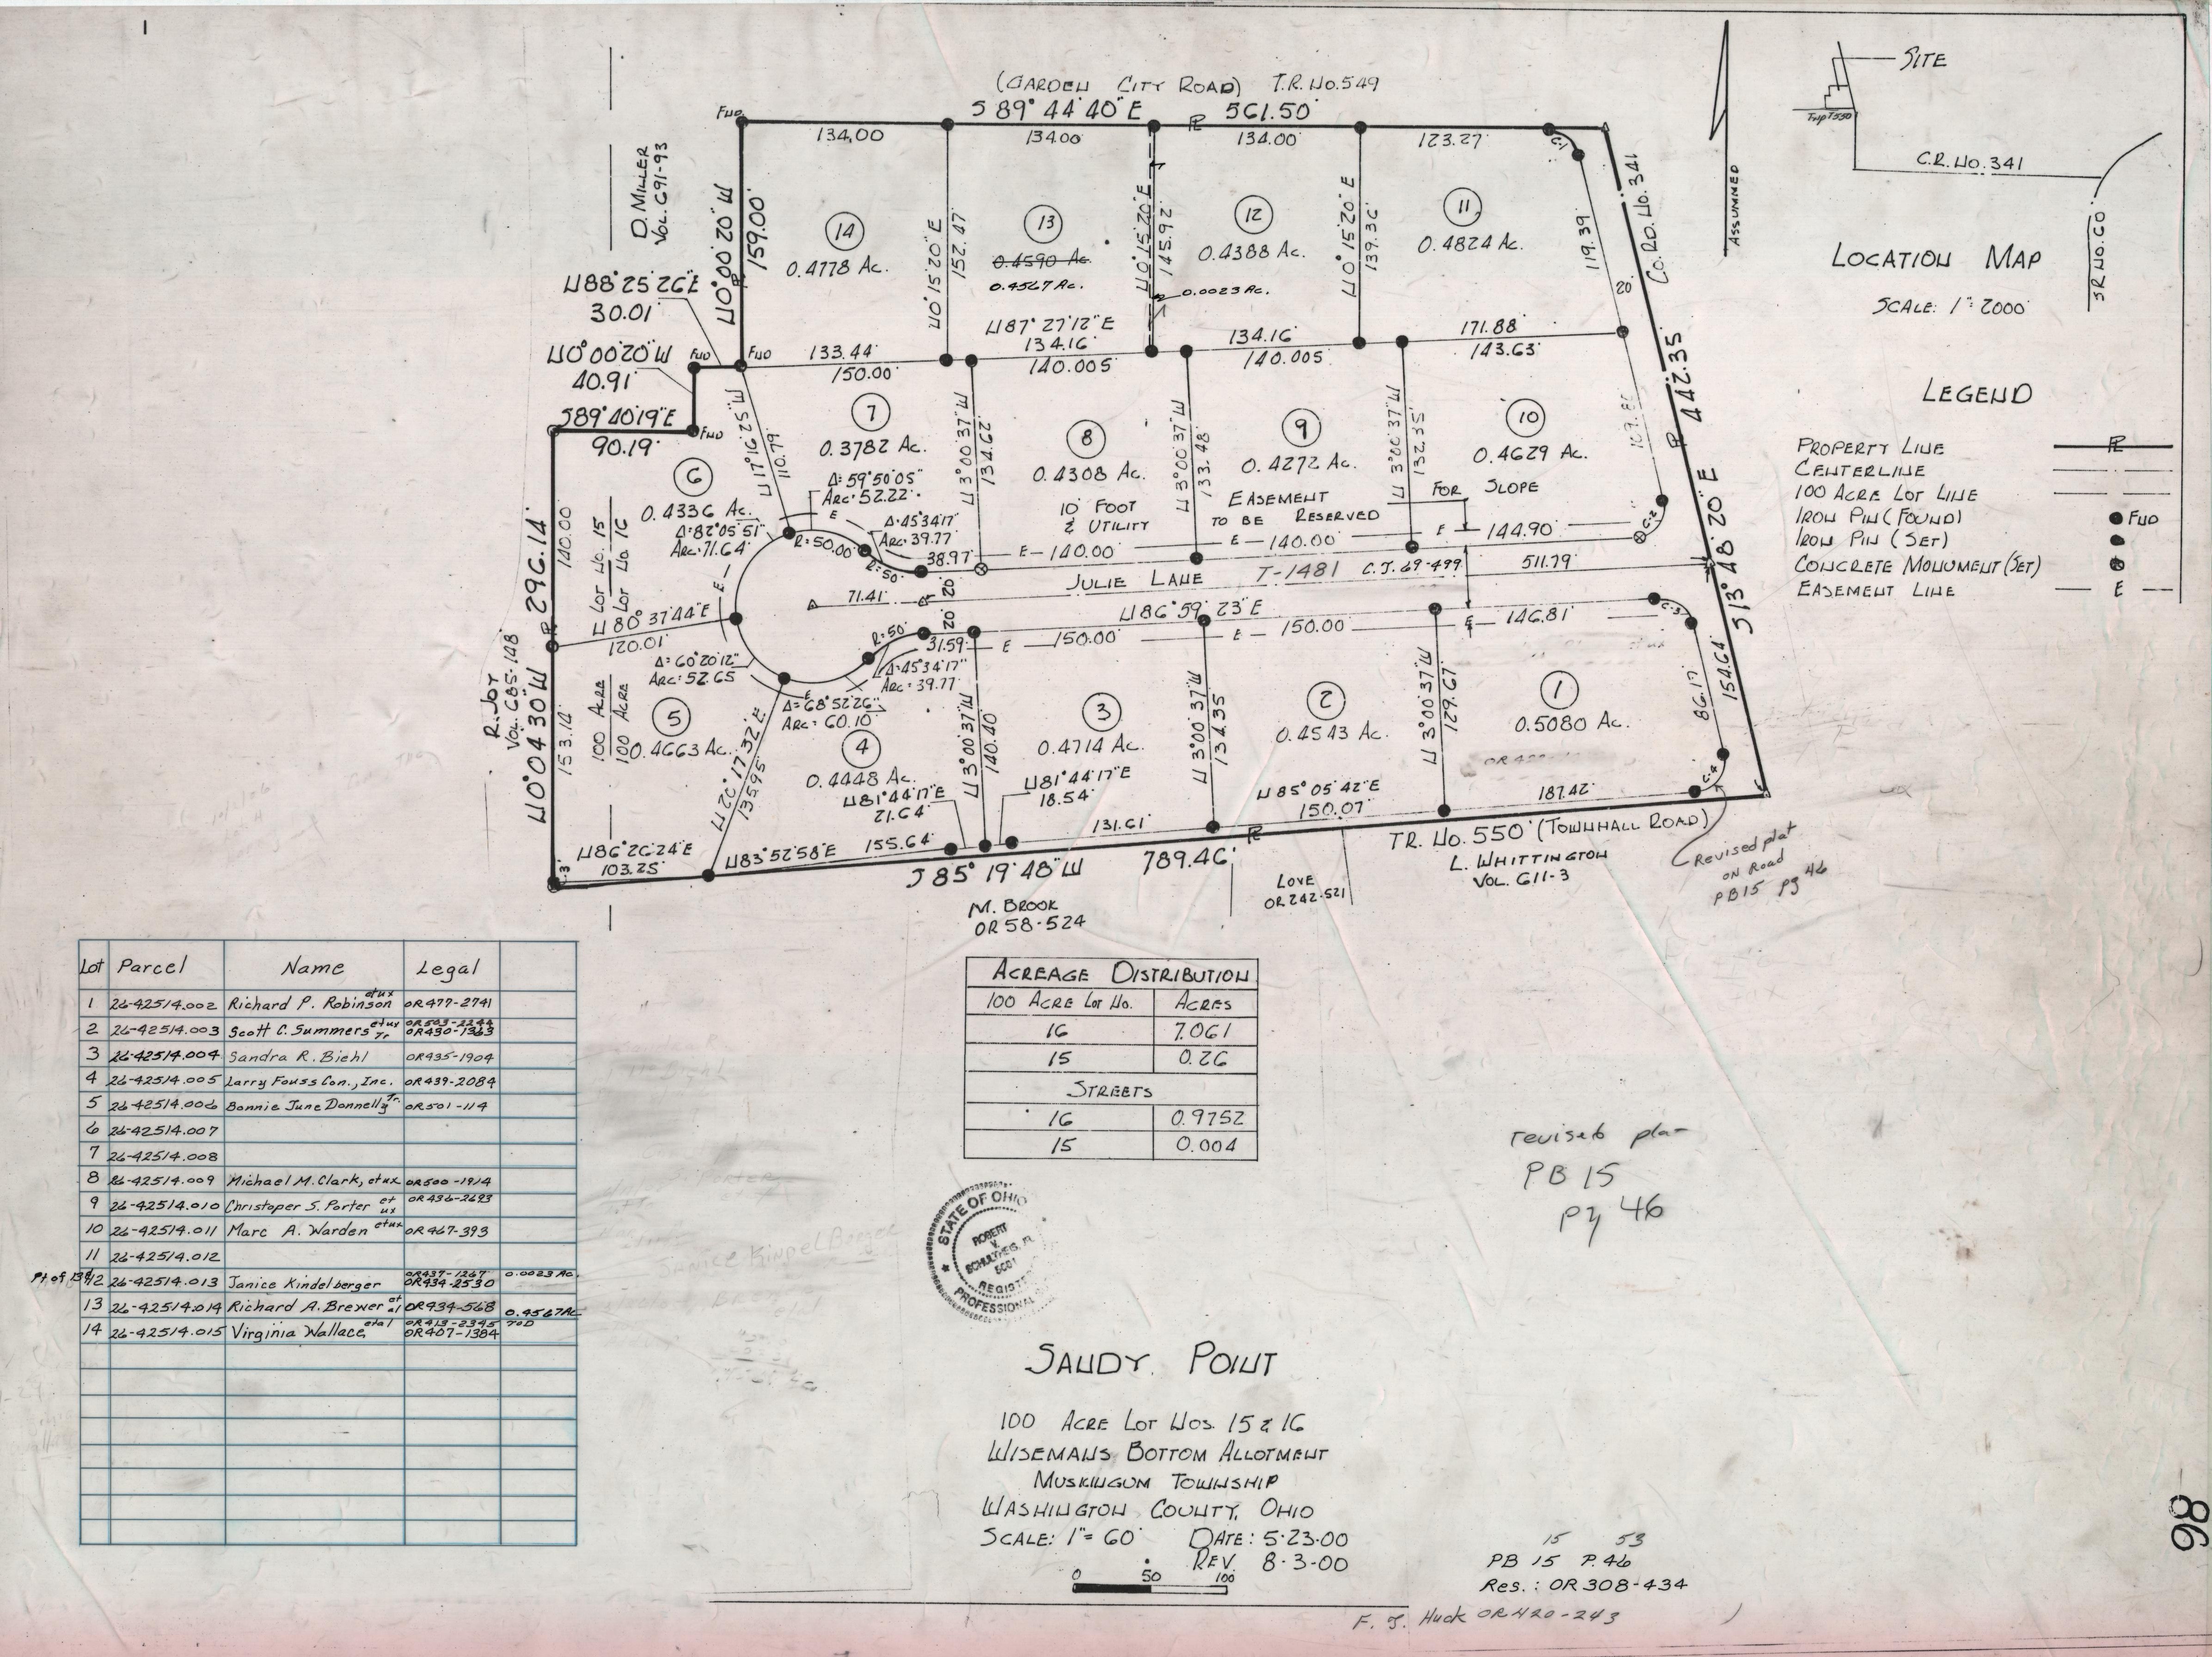 (GARDEN CITY ROAD) T.R. No. 549
S 89° 44' 40" E 561.50'
FND
134.00
134.00'
134.00'
123.27
C-1
D. MILLER
VOL. 691-93
N0° 00' 20" W
159.00'
14
0.4778 Ac.
N0° 15' 20" E
152.47
13
0.4590 Ac.
0.4567 Ac.
N0° 15' 20" E
145.92'
0.0023 Ac.
12
0.4388 Ac.
N0° 15' 20" E
139.36'
11
0.4824 Ac.
119.39
20'
CO. RD. No. 341
442.35
S 13° 48' 20" E
ASSUMED
N88° 25' 26" E
30.01'
N0° 00' 20" W
40.91'
FND
FND
S89° 40' 19" E
90.19'
FND
133.44'
150.00'
N87° 27' 12" E
134.16'
140.005
134.16
140.005
171.88'
143.63
6
0.4336 Ac.
Δ=82° 05' 51"
ARC: 71.64'
N17° 16' 25" W
110.79
7
0.3782 Ac.
Δ: 59° 50' 05"
ARC: 52.22'
N 3° 00' 37" W
134.62'
8
0.4308 Ac.
N 3° 00' 37" W
133.48
9
0.4272 Ac.
N 3° 00' 37" W
132.35'
10
0.4629 Ac.
10 FOOT EASEMENT FOR SLOPE
& UTILITY TO BE RESERVED
Δ: 45° 34' 17"
ARC: 39.77
R=50.00'
R=50'
38.97
E — 140.00'
E — 140.00'
E 144.90
C-2
JULIE LANE T-1481 C.J. 69-499
511.79
71.41
20'
20'
N86° 59' 23" E
296.14'
140.00
100 ACRE LOT No. 15
100 ACRE LOT No. 16
N 80° 37' 44" E
120.01'
R=50'
31.59
E — 150.00'
E — 150.00
E — 146.81
C-3
Δ= 60° 20' 12"
ARC: 52.65
Δ: 45° 34' 17"
ARC: 39.77
Δ= 68° 52' 26"
ARC: 60.10'
R. JOY
VOL. 685-148
N0° 04' 30" W
153.14'
5
0.4663 Ac.
N 26° 17' 32" E
135.95
4
0.4448 Ac.
N81° 44' 17" E
21.64
N 3° 00' 37" W
140.40
3
0.4714 Ac.
N81° 44' 17" E
18.54'
N 3° 00' 37" W
134.35
2
0.4543 Ac.
N 3° 00' 37" W
129.67
1
0.5080 Ac.
86.17
154.64
N85° 05' 42" E
150.07'
187.42'
C-4
N86° 26' 24" E
103.25'
N83° 52' 58" E 155.64'
131.61
S 85° 19' 48" W 789.46'
TR. No. 550 (TOWNHALL ROAD)
L. WHITTINGTON
VOL. 611-3
LOVE
OR 242-521
M. BROOK
OR 58-524
Revised plat
on Road
PB15 pg 46
SITE
Twp T550
C.R. No. 341
LOCATION MAP
SCALE: 1"= 2000'
LEGEND
PROPERTY LINE
CENTERLINE
100 ACRE LOT LINE
IRON PIN (FOUND) FND
IRON PIN (SET)
CONCRETE MONUMENT (SET)
EASEMENT LINE — E —
Lot Parcel Name Legal
1 26-42514.002 Richard P. Robinson etux OR477-2741
2 26-42514.003 Scott C. Summers etux Tr OR503-2244 OR430-1363
3 26-42514.004 Sandra R. Biehl OR435-1904
4 26-42514.005 Larry Fouss Con., Inc. OR439-2084
5 26-42514.006 Bonnie June Donnelly Tr. OR501-114
6 26-42514.007
7 26-42514.008
8 26-42514.009 Michael M. Clark, etux OR500-1914
9 26-42514.010 Christoper S. Porter et ux OR436-2693
10 26-42514.011 Marc A. Warden etux OR467-393
11 26-42514.012
Pt of 13 & 12 26-42514.013 Janice Kindelberger OR437-1267 OR434-2530 0.0023 Ac.
13 26-42514.014 Richard A. Brewer et al OR434-568 0.4567 Ac
14 26-42514.015 Virginia Wallace etal OR413-2345 TOD OR407-1384
ACREAGE DISTRIBUTION
100 ACRE LOT No. ACRES
16 7.061
15 0.26
STREETS
16 0.9752
15 0.004
revised plan
PB 15
pg 46
STATE OF OHIO
ROBERT
V.
SCHULTHEIS
REGISTERED
PROFESSIONAL
SANDY POINT
100 ACRE LOT NOS. 15 & 16
WISEMANS BOTTOM ALLOTMENT
MUSKINGUM TOWNSHIP
WASHINGTON COUNTY, OHIO
SCALE: 1"= 60' DATE: 5-23-00
REV. 8-3-00
0 50 100
15 53
PB 15 P. 46
Res.: OR 308-434
F. J. Huck OR 420-243
86